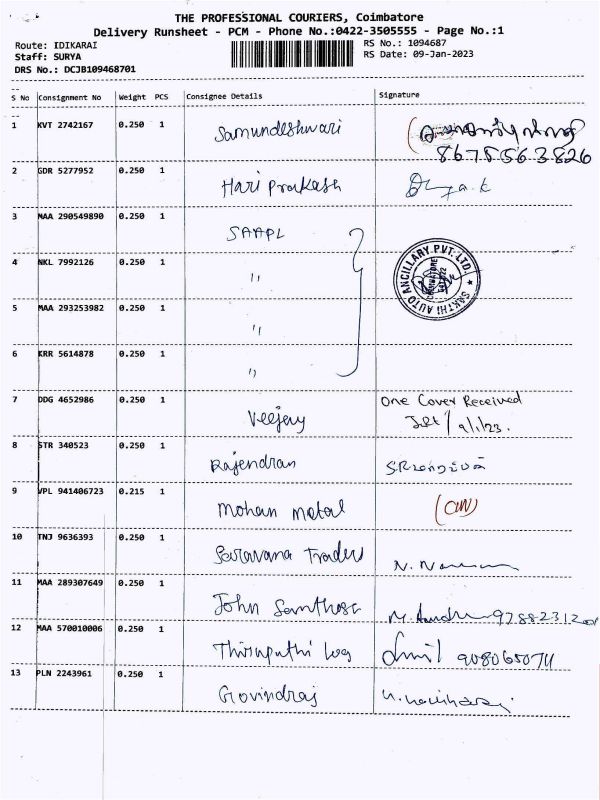 THE PROFESSIONAL COURIERS, Coimbatore
Delivery Runsheet - PCM - Phone No.:0422-3505555 - Page No.:1
Route: IDIKARAI RS No.: 1094687
Staff: SURYA RS Date: 09-Jan-2023
DRS No.: DCJB109468701
S No Consignment No Weight PCS Consignee Details Signature
1 KVT 2742167 0.250 1 Samundeshwari
8675563826
2 GDR 5277952 0.250 1 Hari Prakash
3 MAA 290549890 0.250 1 SAAPL
4 NKL 7992126 0.250 1 "
SAKTHI AUTO ANCILLARY PVT. LTD.
5 MAA 293253982 0.250 1 "
6 KRR 5614878 0.250 1 "
7 DDG 4652986 0.250 1 Veejay One Cover Received
9/1/23.
8 STR 340523 0.250 1 Rajendran
9 VPL 941406723 0.215 1 Mohan Metal
10 TNJ 9636393 0.250 1 Saravana Traders
11 MAA 289307649 0.250 1 John Santhose
12 MAA 570010006 0.250 1 Thiruputhi Log
13 PLN 2243961 0.250 1 Govindraj